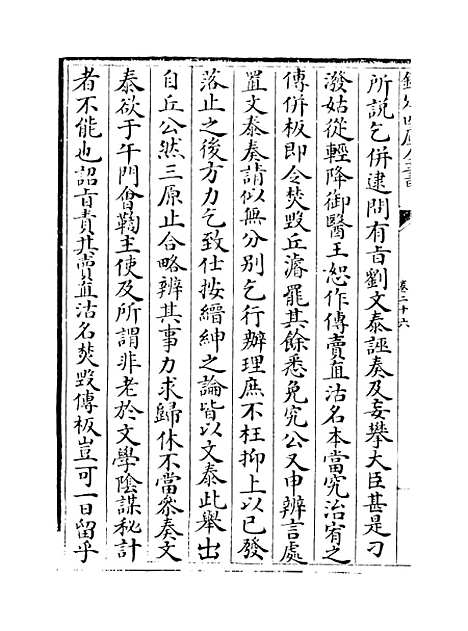 欽定四庫全書
卷二十六
所說乞併逮問有旨劉文泰誣奏及妄攀大臣甚是刁
潑姑從輕降御醫王恕作傳賣直沽名本當究治宥之
傳併板即令焚毀丘濬罷其餘悉免究公又申辨言處
置文泰奏請似無分別乞行辦理庶不枉抑上以已發
落止之後方力乞致仕按縉紳之論皆以文泰此舉出
自丘公然三原止合略辨其事力求歸休不當叅奏文
泰欲于午門會鞫主使及所謂非老於文學陰謀秘計
者不能也詔旨責其賣直沽名焚毀傳板豈可一日留乎